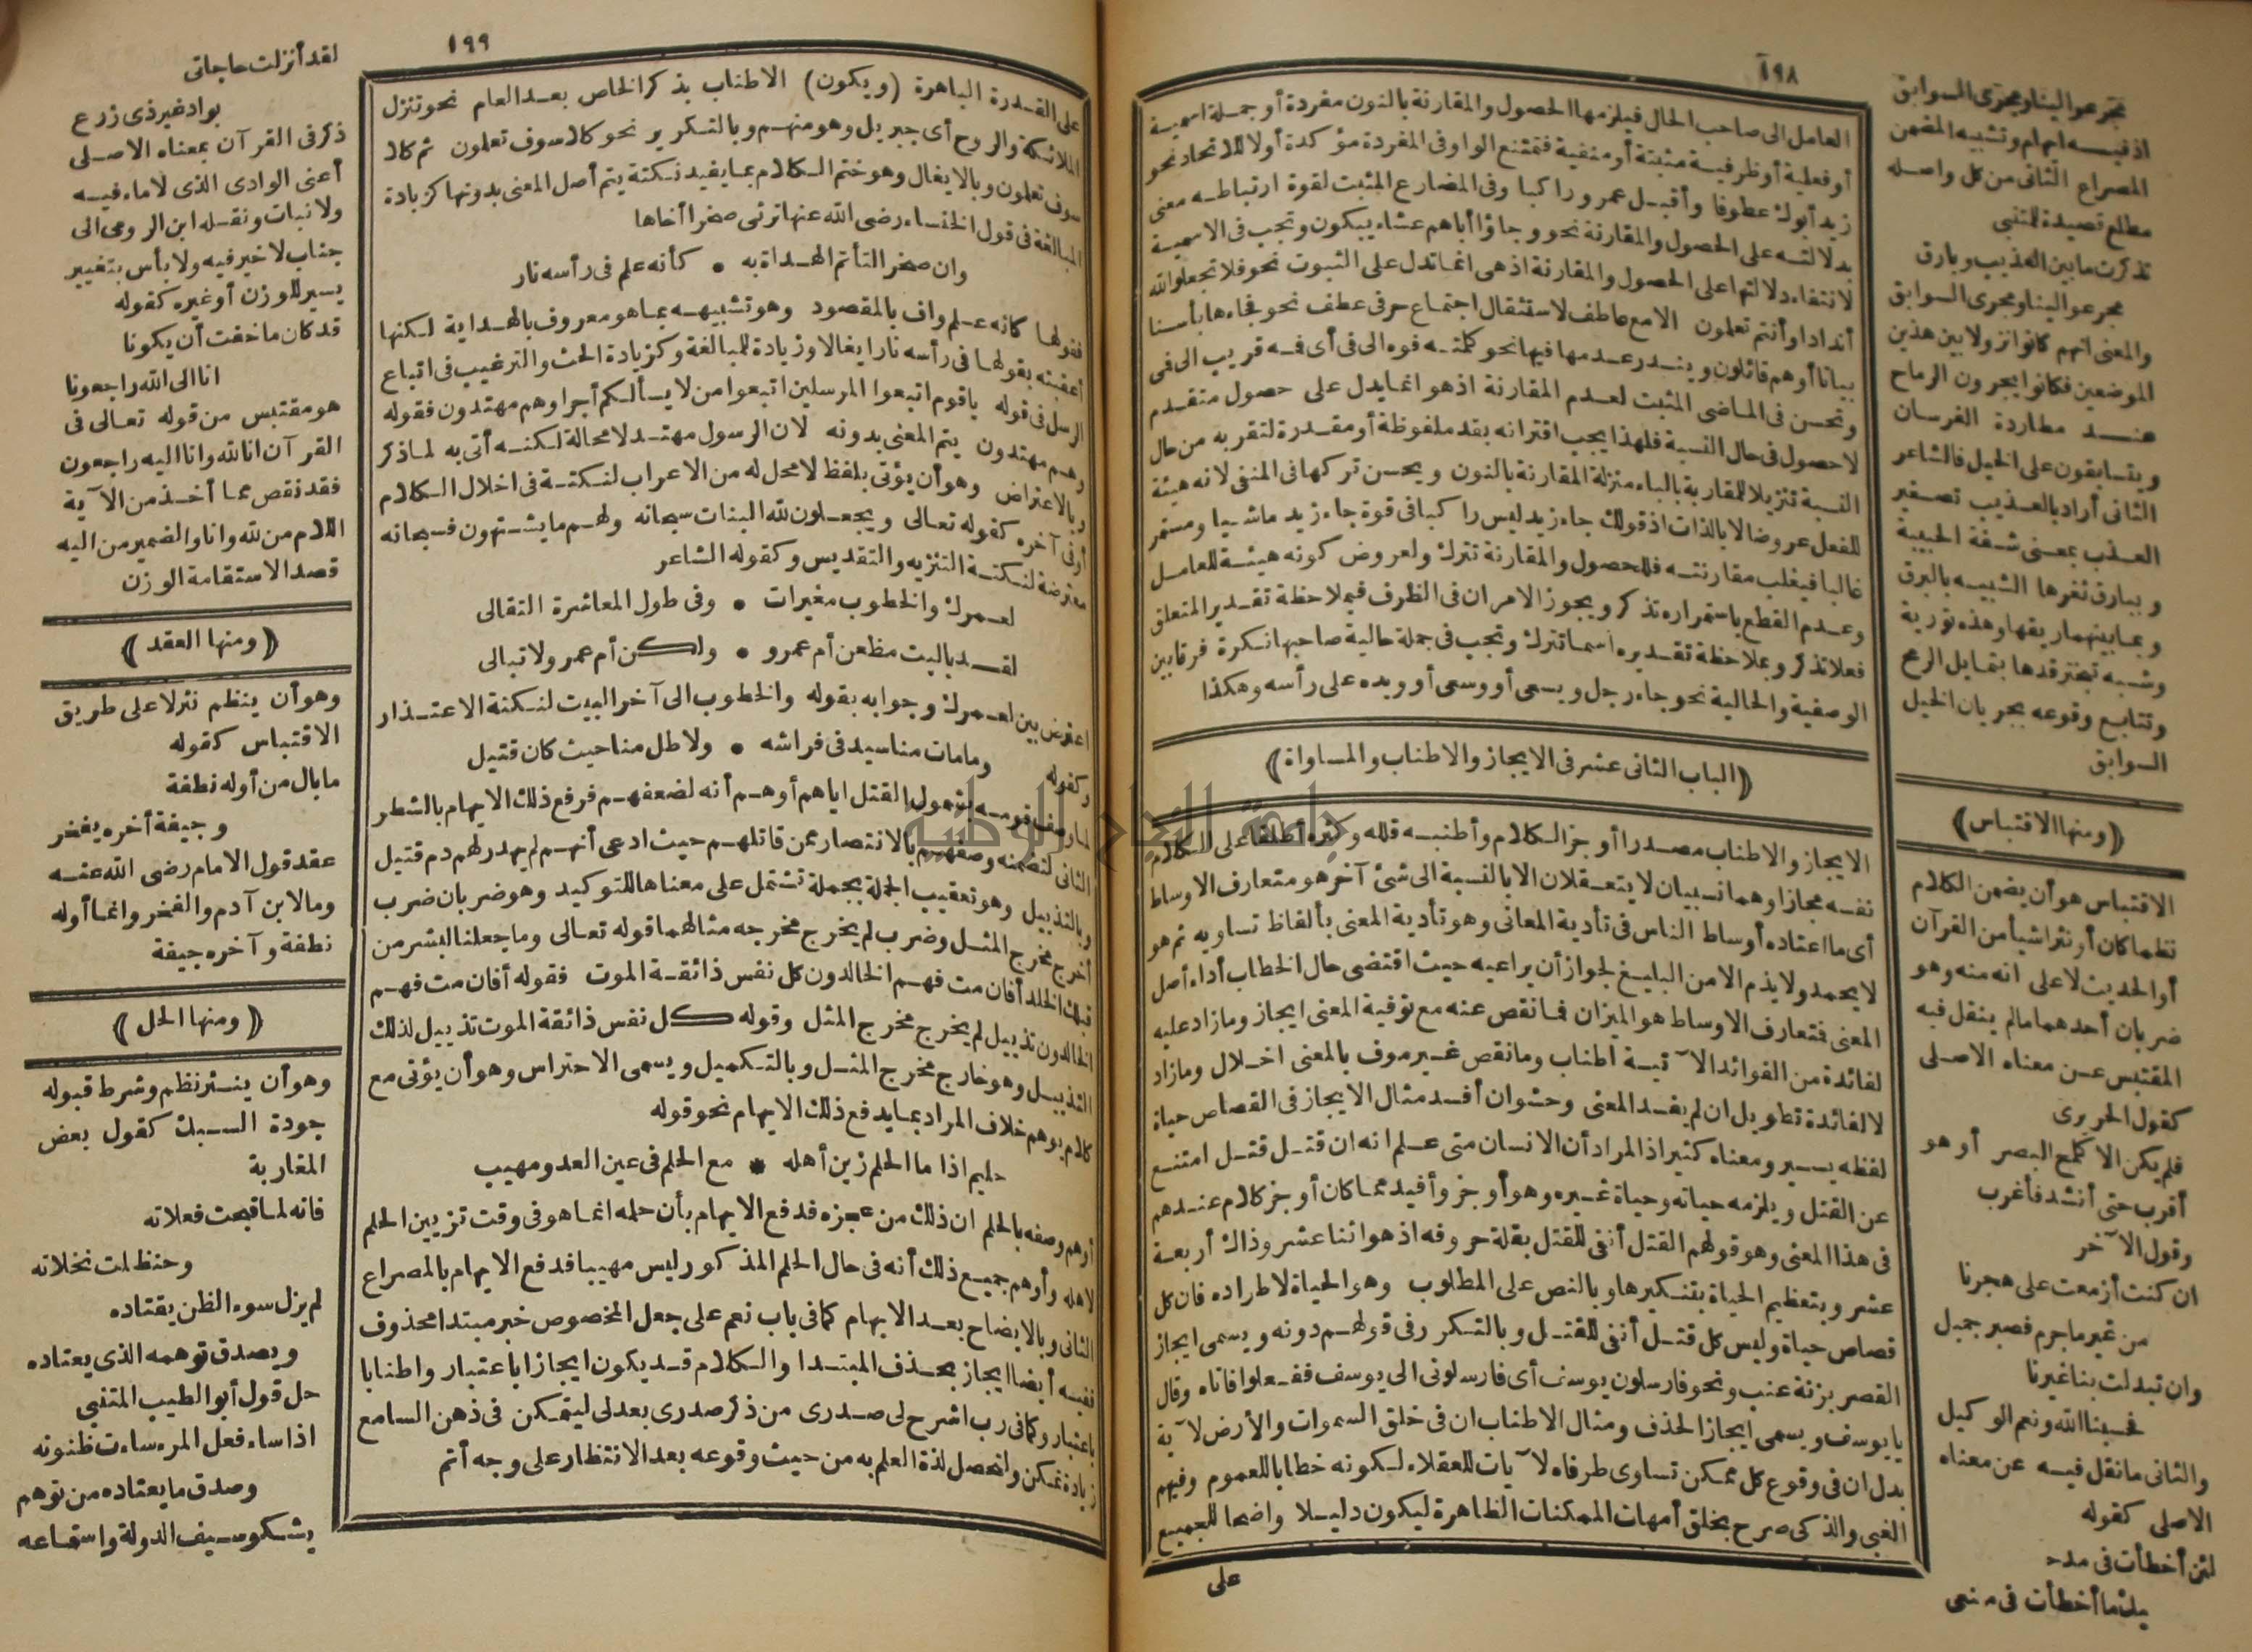 ١٩٨
العامل الى صاحب الحال فيلزمها الحصول والمقارنة بالنون مفردة أو جملة اسمية
أو فعلية أو ظرفية مثبتة أو منفية فتمتنع الواو فى المفردة مؤكدة أولا للاتحاد نحو
زيد أبوك عطوفا وأقبل عمرو راكبا وفى المضارع المثبت لقوة ارتباطه معنى
بدلالته على الحصول والمقارنة نحو وجاؤا أباهم عشاء يبكون وتجب فى الاسمية
لانتفاء دلالتها على الحصول والمقارنة اذ هى انما تدل على الثبوت نحو فلا تجعلوا لله
أندادا وأنتم تعلمون الامع عاطف لاستثقال اجتماع حرفى عطف نحو فجاءها بأسنا
بياتا أو هم قائلون ويندر عدمها فيها نحو كلمته فوه الى فى أى فمه قريب الى فى
وتحسن فى الماضى المثبت لعدم المقارنة اذ هو انما يدل على حصول متقدم
لا حصول فى حال النسبة فلهذا يجب اقترانه بقد ملفوظة أو مقدرة لتقربه من حال
النسبة تنزيلا للمقاربة بالباء منزلة المقارنة بالنون ويحسن تركها فى المنفى لانه هيئة
للفعل عروضا لا بالذات اذ قولك جاء زيد ليس راكبا فى قوة جاء زيد ماشيا ومستمر
غالبا فيغلب مقارنته فللحصول والمقارنة تترك ولعروض كونه هيئة للعامل
وعدم القطع باستمراره تذكر ويجوز الامران فى الظرف فبملاحظة تقدير المتعلق
فعلا تذكر وبملاحظة تقديره اسما تترك وتجب فى جملة حالية صاحبها نكرة فرقا بين
الوصفية والحالية نحو جاء رجل ويسعى أو وسعى أو ويده على رأسه وهكذا
(الباب الثانى عشر فى الايجاز والاطناب والمساواة)
الايجاز والاطناب مصدرا أوجز الكلام وأطنبه قلله وكثره أطلقا على الكلام
نفسه مجازا وهما نسبيان لا يتعقلان الا بالنسبة الى شئ آخر هو متعارف الاوساط
أى ما اعتاده أوساط الناس فى تأدية المعانى وهو تأدية المعنى بألفاظ تساويه ثم هو
لا يحمد ولا يذم الا من البليغ لجواز أن يراعيه حيث اقتضى حال الخطاب أداء أصل
المعنى فتعارف الاوساط هو الميزان فما نقص عنه مع توفية المعنى ايجاز وما زاد عليه
لفائدة من الفوائد الآتية اطناب وما نقص غير موف بالمعنى اخلال وما زاد
لا لفائدة تطويل ان لم يفسد المعنى وحشو ان أفسد مثال الايجاز فى القصاص حياة
لفظه يسير ومعناه كثير اذ المراد أن الانسان متى علم انه ان قتل قتل امتنع
عن القتل ويلزمه حياته وحياة غيره وهو أوجز وأفيد مما كان أوجز كلام عندهم
فى هذا المعنى وهو قولهم القتل أنفى للقتل بقلة حروفه اذ هو اثنا عشر وذاك أربعة
عشر وبتعظيم الحياة بتنكيرها وبالنص على المطلوب وهو الحياة لاطراده فان كل
قصاص حياة وليس كل قتل أنفى للقتل وبالتكرر فى قولهم دونه ويسمى ايجاز
القصر بزنة عنب ونحو فارسلون يوسف أى فارسلونى الى يوسف ففعلوا فاتاه وقال
يا يوسف ويسمى ايجاز الحذف ومثال الاطناب ان فى خلق السموات والأرض لآية
بدل ان فى وقوع كل ممكن تساوى طرفاه لآيات للعقلاء لكونه خطابا للعموم وفيهم
الغبى والذكى صرح بخلق أمهات الممكنات الظاهرة ليكون دليلا واضحا للجميع
على
مجر عوالينا ومجرى السوابق
اذ فيه ابهام وتشبيه المضمن
المصراع الثانى من كل واصله
مطلع قصيدة للمتنبى
تذكرت ما بين العذيب وبارق
مجر عوالينا ومجرى السوابق
والمعنى انهم كانوا نزولا بين هذين
الموضعين فكانوا يجرون الرماح
عند مطاردة الفرسان
ويتسابقون على الخيل فالشاعر
الثانى أراد بالعذيب تصغير
العذب بمعنى شفة الحبيبة
وببارق ثغرها الشبيه بالبرق
وبما بينهما ريقها وهذه تورية
وشبه تبختر قدها بتمايل الرمح
وتتابع دموعه بجريان الخيل
السوابق
(ومنها الاقتباس)
الاقتباس هو أن يضمن الكلام
نظما كان أو نثرا شيأ من القرآن
أو الحديث لا على انه منه وهو
ضربان أحدهما ما لم ينقل فيه
المقتبس عن معناه الاصلى
كقول الحريرى
فلم يكن الا كلمح البصر أو هو
أقرب حتى أنشد فأغرب
وقول الآخر
ان كنت أزمعت على هجرنا
من غير ما جرم فصبر جميل
وان تبدلت بنا غيرنا
فحسبنا الله ونعم الوكيل
والثانى ما نقل فيه عن معناه
الاصلى كقوله
لئن أخطأت فى مدحـ
يك ما أخطأت فى منعى
١٩٩
على القدرة الباهرة (ويكون) الاطناب بذكر الخاص بعد العام نحو تنزل
الملائكة والروح أى جبريل وهو منهم وبالتكرير نحو كلا سوف تعلمون ثم كلا
سوف تعلمون وبالايغال وهو ختم الكلام بما يفيد نكتة يتم أصل المعنى بدونها كزيادة
المبالغة فى قول الخنساء رضى الله عنها ترثى صخرا أخاها
وان صخر التأتم الهداة به • كأنه علم فى رأسه نار
فقولها كانه علم واف بالمقصود وهو تشبيهه بما هو معروف بالهداية لكنها
أعقبته بقولها فى رأسه نار ايغالا وزيادة للمبالغة وكزيادة الحث والترغيب فى اتباع
الرسل فى قوله ياقوم اتبعوا المرسلين اتبعوا من لا يسألكم أجرا وهم مهتدون فقوله
وهم مهتدون يتم المعنى بدونه لان الرسول مهتد لا محالة لكنه أتى به لما ذكر
وبالاعتراض وهو أن يؤتى بلفظ لا محل له من الاعراب لنكتة فى اخلال الكلام
أو فى آخره كقوله تعالى ويجعلون لله البنات سبحانه ولهم ما يشتهون فسبحانه
معترضة لنكتة التنزيه والتقديس وكقوله الشاعر
لعمرك والخطوب مغيرات • وفى طول المعاشرة التقالى
لقد باليت مظعن أم عمرو • ولكن أم عمرو لا تبالى
اعترض بين لعمرك وجوابه بقوله والخطوب الى آخر البيت لنكتة الاعتذار
وكقوله
وما مات منا سيد فى فراشه • ولا طل منا حيث كان قتيل
لما وصف قومه بشمول القتل اياهم أوهم أنه لضعفهم فرفع ذلك الايهام بالشطر
الثانى لتضمنه وصفهم بالانتصار ممن قاتلهم حيث ادعى أنهم لم يهدر لهم دم قتيل
وبالتذييل وهو تعقيب الجملة بجملة تشتمل على معناها للتوكيد وهو ضربان ضرب
أخرج مخرج المثل وضرب لم يخرج مخرجه مثالهما قوله تعالى وما جعلنا لبشر من
قبلك الخلد أفان مت فهم الخالدون كل نفس ذائقة الموت فقوله أفان مت فهم
الخالدون تذييل لم يخرج مخرج المثل وقوله كل نفس ذائقة الموت تذييل لذلك
التذييل وهو خارج مخرج المثل وبالتكميل ويسمى الاحتراس وهو أن يؤتى مع
كلام يوهم خلاف المراد بما يدفع ذلك الايهام نحو قوله
حليم اذا ما الحلم زين أهله * مع الحلم فى عين العدو مهيب
أوهم وصفه بالحلم ان ذلك من عجزه فدفع الايهام بأن حلمه انما هو فى وقت تزيين الحلم
لاهله وأوهم جميع ذلك أنه فى حال الحلم المذكور ليس مهيبا فدفع الايهام بالمصراع
الثانى وبالايضاح بعد الابهام كما فى باب نعم على جعل المخصوص خبر مبتدا محذوف
نفسه أيضا ايجاز بحذف المبتدا والكلام قد يكون ايجازا باعتبار واطنابا
باعتبار وكما فى رب اشرح لى صدرى من ذكر صدرى بعد لى ليتمكن فى ذهن السامع
زيادة تمكن ولتحصل لذة العلم به من حيث وقوعه بعد الانتظار على وجه أتم
لقد أنزلت حاجاتى
بواد غير ذى زرع
ذكر فى القرآن بمعناه الاصلى
أعنى الوادى الذى لا ماء فيه
ولا نبات ونقله ابن الرومى الى
جناب لا خير فيه ولا بأس بتغيير
يسير للوزن أو غيره كقوله
قد كان ما خفت أن يكونا
انا الى الله راجعونا
هو مقتبس من قوله تعالى فى
القرآن انا لله وانا اليه راجعون
فقد نقص مما أخذ من الآية
اللام من لله وانا والضمير من اليه
قصد الاستقامة الوزن
(ومنها العقد)
وهو أن ينظم نثر لا على طريق
الاقتباس كقوله
ما بال من أوله نطفة
وجيفة أخره يفخر
عقد قول الامام رضى الله عنه
وما لابن آدم والفخر وانما أوله
نطفة وآخره جيفة
(ومنها الحل)
وهو أن ينثر نظم وشرط قبوله
جودة السبك كقول بعض
المغاربة
فانه لما قبحت فعلاته
وحنظلت نخلاته
لم يزل سوء الظن يقتاده
ويصدق توهمه الذى يعتاده
حل قول أبو الطيب المتنبى
اذا ساء فعل المرء ساءت ظنونه
وصدق ما يعتاده من توهم
يشكو سيف الدولة واستماعه
جامعة النجاح الوطنية